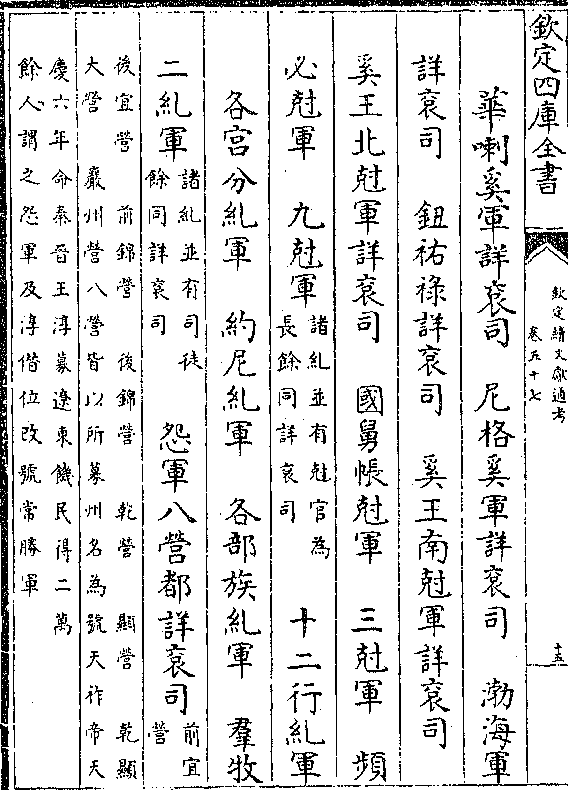 欽定四庫全書
欽定續文獻通考
卷五十七
十五
華喇奚軍詳袞司 尼格奚軍詳袞司 渤海軍
詳袞司 鈕祐祿詳袞司 奚王南尅軍詳袞司
奚王北尅軍詳袞司 國舅帳尅軍 三尅軍 頻
必尅軍 九尅軍 諸糺並有尅官為長餘同詳袞司 十二行糺軍
各宫分糺軍 約尼糺軍 各部族糺軍 羣牧
二糺軍 諸糺並有司徒餘同詳袞司 怨軍八營都詳袞司 前宜營
後宜營 前錦營 後錦營 乾營 顯營 乾顯
大營 巖州營八營皆以所募州名為號天祚帝天
慶六年命秦晉王淳募遼東饑民得二萬
餘人謂之怨軍及淳僭位改號常勝軍